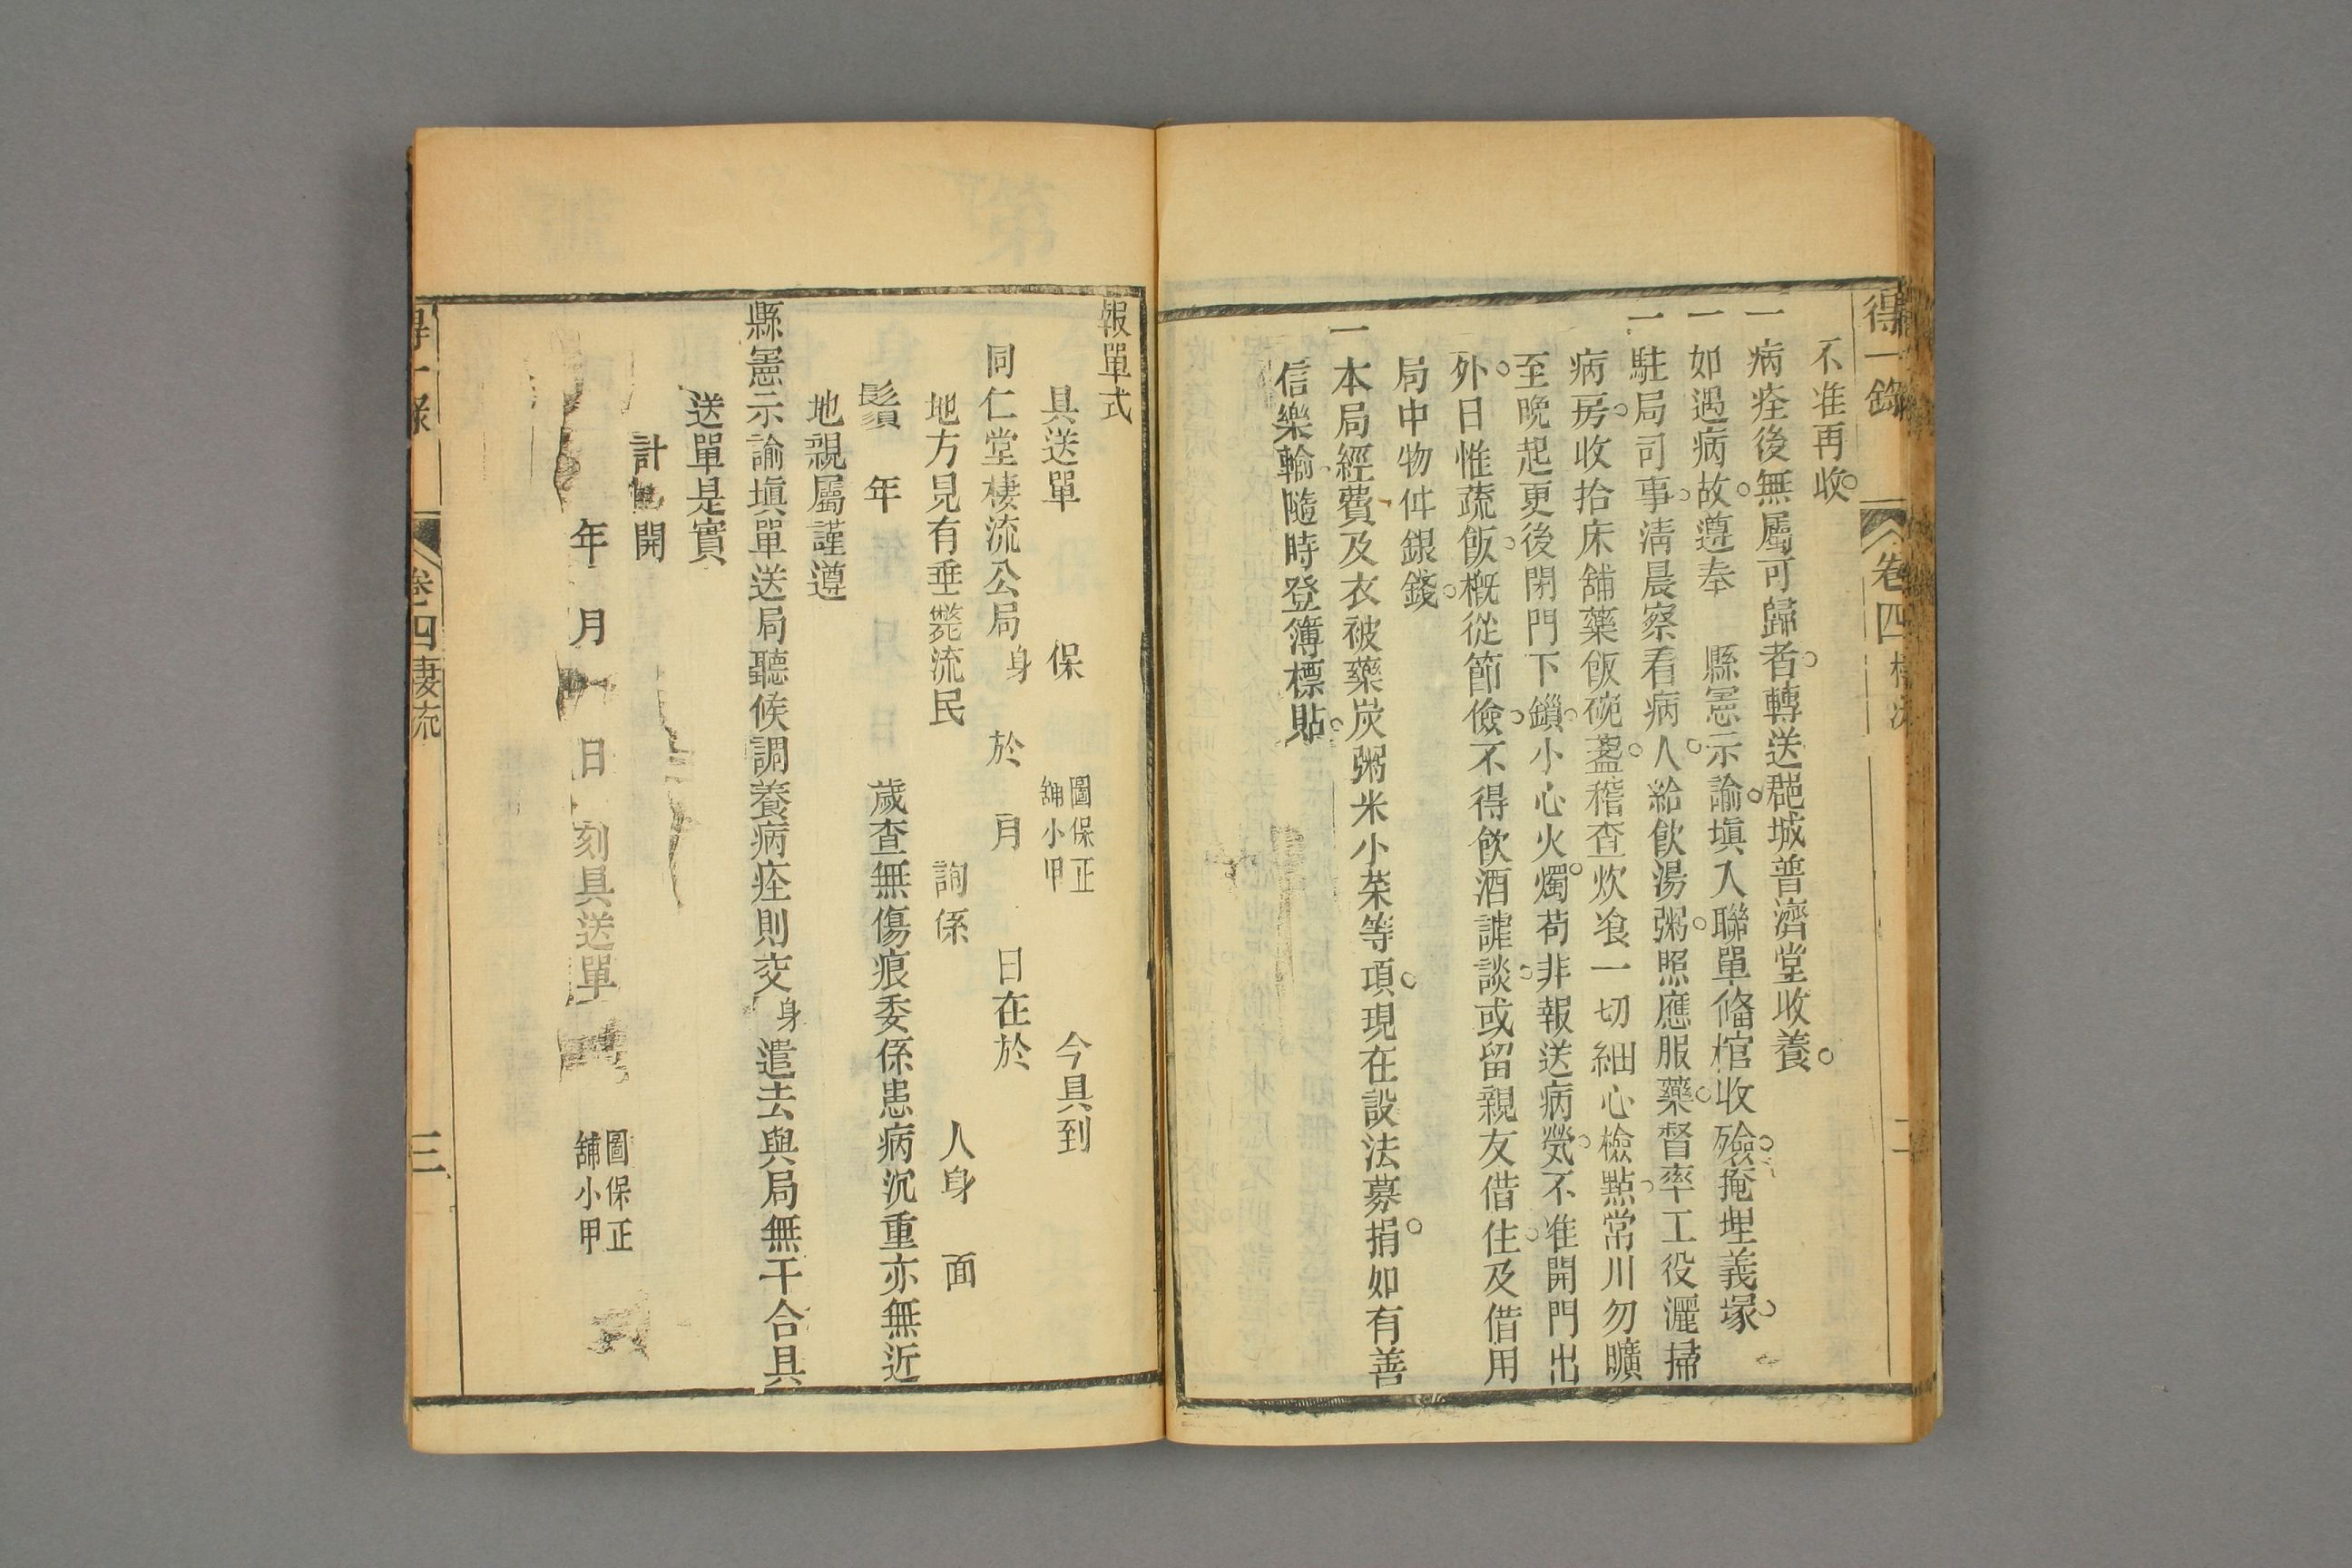 得一錄 卷四 棲流 二
不准再收。
一病痊後無屬可歸者。轉送郡城普濟堂收養。
一如遇病故。遵奉 縣憲示諭。塡入聯單俻棺收殮。掩埋義塚。
一駐局司事。淸晨察看病人。給飮湯粥。照應服藥。督率工役灑掃
病房。收拾床舖藥飯碗盞。稽查炊飡一切細心檢點。常川勿曠
至晚起更後閉門下鎖。小心火燭。苟非報送病㷀。不准開門出
外。日惟蔬飯。槪從節儉。不得飮酒謔談。或留親友借住。及借用
局中物件銀錢。
一本局經費及衣被藥炭粥米小菜等項。現在設法募捐。如有善
信樂輸隨時登簿標貼。
報單式
具送單 保 圖保正 舖小甲 今具到
同仁堂棲流公局身 於 月 日在於
地方見有垂斃流民 詢係 人身 面
鬚 年 歲查無傷痕委係患病沉重亦無近
地親屬謹遵
縣憲示諭塡單送局聽候調養病痊則交身遣去與局無干合具
送單是實
計開
年 月 日 刻具送單 圖保正 舖小甲
得一錄 卷四 棲流 三